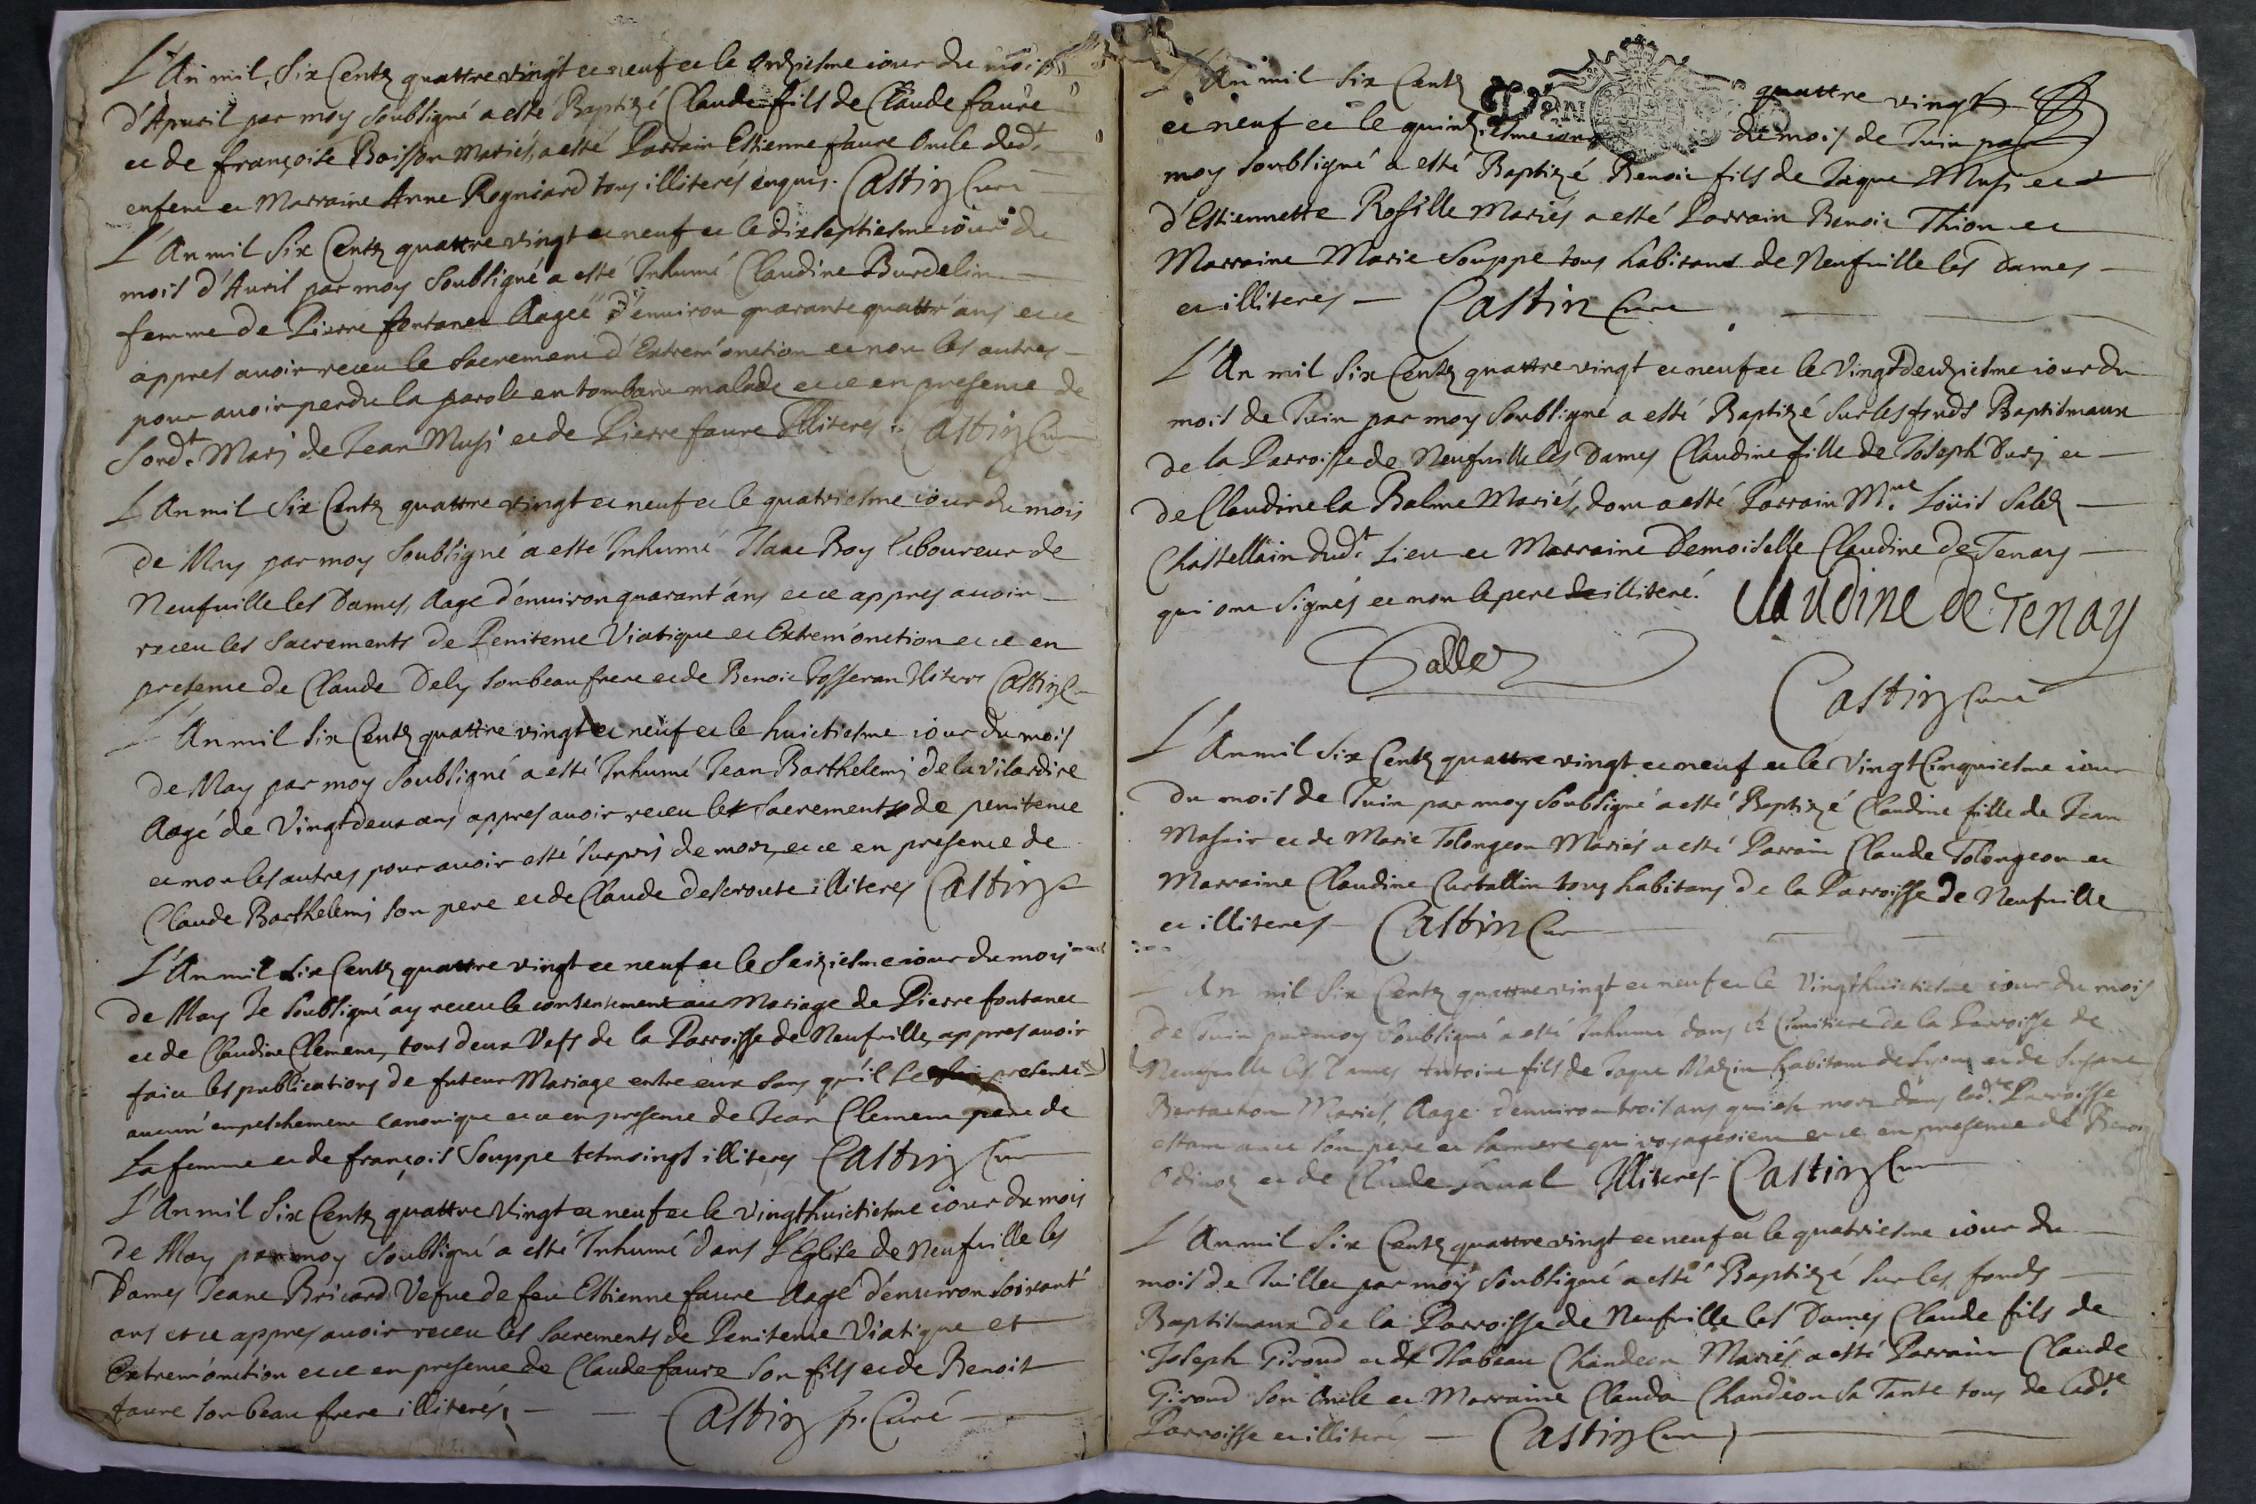 L'An mil, Six Centz quattre vingt et neuf et le Onziesme iour du mois
d'Apuril par moy Soubsigné a esté Baptizé Claude fils de Claude faure
et de françoise Boisson Mariés, a esté Parrain Estienne faure Oncle dud.t
enfent et Marraine Anne Rogniard tous illiterés enquis. Castin Curé
L'An mil Six Centz quattre vingt et neuf et le dixseptiesme iour du
mois d'Auril par moy Soubsigné a esté Inhumé Claudine Burdelin
femme de Pierre fontanet Aageé d'enuiron quarante quattr'ans et ce
appres auoir receu le Sacrement d'Extrem'onction et non les autres
pour auoir perdu la parole en tombant malade et ce en presence de
Sond.t Marj de Jean Musi et de Pierre faure Illiterés Castin Curé
L'An mil Six Centz quattre vingt et neuf et le quatriesme iour du mois
de May par moy Soubsigné a esté Inhumé Isaac Roy laboureur de
Neufuille les Dames, Aagé d'enuiron quarant'ans et ce appres auoir
receu les Sacrements de Penitence Viatique et Extrem'onction et ce en
presence de Claude Dely Son beau frere et de Benoit Josseran Illiteres Castin C
L'An mil Six Centz quattre vingt et neuf et le huictiesme iour du mois
de May par moy Soubsigné a esté Inhumé Jean Barthelemj de la Vilardire
Aagé de Vingt deux ans appres auoir receu les Sacrements de penitence
et non les autres pour auoir esté surpris de mort, et ce en presence de
Claude Barthelemj Son pere et de Claude descroute illiteres Castin C
L'An mil Six Centz quattre vingt et neuf et le Seiziesme iour du mois
de May Je Soubsigné ay receu le consentement au Mariage de Pierre fontanet
et de Claudine Clement, tous deux Vefs de la Parroisse de Neufuille, appres auoir
faict les publications de futeur Mariage entre eux Sans qu'il se presente
aucun' empeschement canonique et ce en presence de Jean Clement pere de
La femme et de françois Souppe tesmoings illiteres Castin Curé
L'An mil Six Centz quattre Vingt et neuf et le vingthuictiesme iour du mois
de May par moy Soubsigné a esté Inhumé dans L'Eglise de Neufuille les
Dames Jeane Bricard Vefue de feu Estienne faure Aagé d'enuiron Soixant'
ans et ce appres auoir receu les Sacrements de Penitence Viatique et
Extrem'onction et ce en presence de Claude faure Son fils et de Benoit
faure Son beau frere illiterés Castin p. Curé
L'An mil Six Centz quattre vingt
et neuf et le quinziesme iour du mois de Juin par
moy Soubsigné a esté Baptizé Benoit fils de Jaque Musi et
d'Estiennette Rossille Mariés a esté Parrain Benoit Thion et
Marraine Marie Souppe tous habitant de Neufuille les Dames
et illiteres Castin Curé
L'An mil Six Centz quattre vingt et neuf et le Vingtdeuziesme iour du
mois de Juin par moy Soubsigné a esté Baptizé Sur les fonds Baptismaux
de la Parroisse de Neufuille les Dames Claudine fille de Joseph Durj et
de Claudine la Balme Mariés, dont a esté Parrain M.re Loüis Salez
Chastellain dud.t Lieu et Marraine Demoiselle Claudine de Tenay
qui ont signés et non le pere illiteré. Claudine de Tenay
Sallez
Castin Curé
L'An mil Six Centz quattre vingt et neuf et le Vingt Cinquiesme iour
du mois de Juin par moy Soubsigné a esté Baptizé Claudine fille de Jean
Massir et de Marie Tolongeon Mariés a esté Parrain Claude Tolongeon et
Marraine Claudine Curtallin tous habitans de la Parroisse de Neufuille
et illiteres Castin Cur
L'An mil Six Centz quattre vingt et neuf et le Vingthuictiesme iour du mois
de Juin par moy Soubsigné a esté Inhumé dans le Cimitiere de la Parroisse de
Neufuille les Dames Antoine fils de Jaque Mazin habitant de Lyon et de Susane
Bertachon Mariés, Aagé d'enuiron trois ans qui est mort dans lad.te Parroisse
estant auec Son pere et Sa mere qui voyageoient et ce en presence de Benoit
Odinoz et de Claude Illiteres Castin Curé
L'An mil Six Centz quattre vingt et neuf et le quatriesme iour du
mois de Juillet par moy Soubsigné a esté Baptizé Sur les fonds
Baptismaux de la Parroisse de Neufuille les Dames Claude fils de
Joseph Giroud et de Isabeau Chandeon Mariés a esté Parrain Claude
Giroud Son Oncle et Marraine Clauda Chandeon Sa Tante tous de lad.te
Parroisse et illiterés Castin Curé